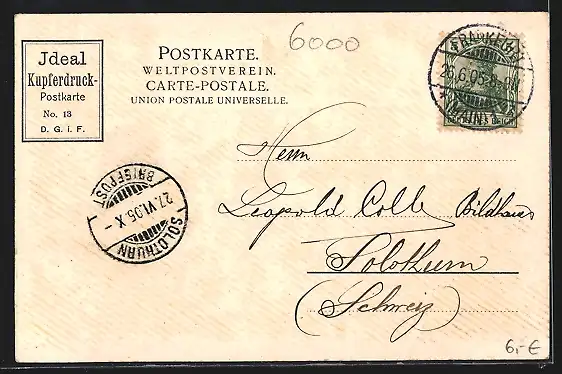 Jdeal
Kupferdruck-
Postkarte
No. 13
D. G. i. F.
POSTKARTE.
WELTPOSTVEREIN.
CARTE-POSTALE.
UNION POSTALE UNIVERSELLE.
6000
26.6.05
BRIEFPOST
27.VI.05.X-
SOLOTHURN
Herrn
Leopold Colb Bildhauer
Solothurn
(Schweiz)
6,-€